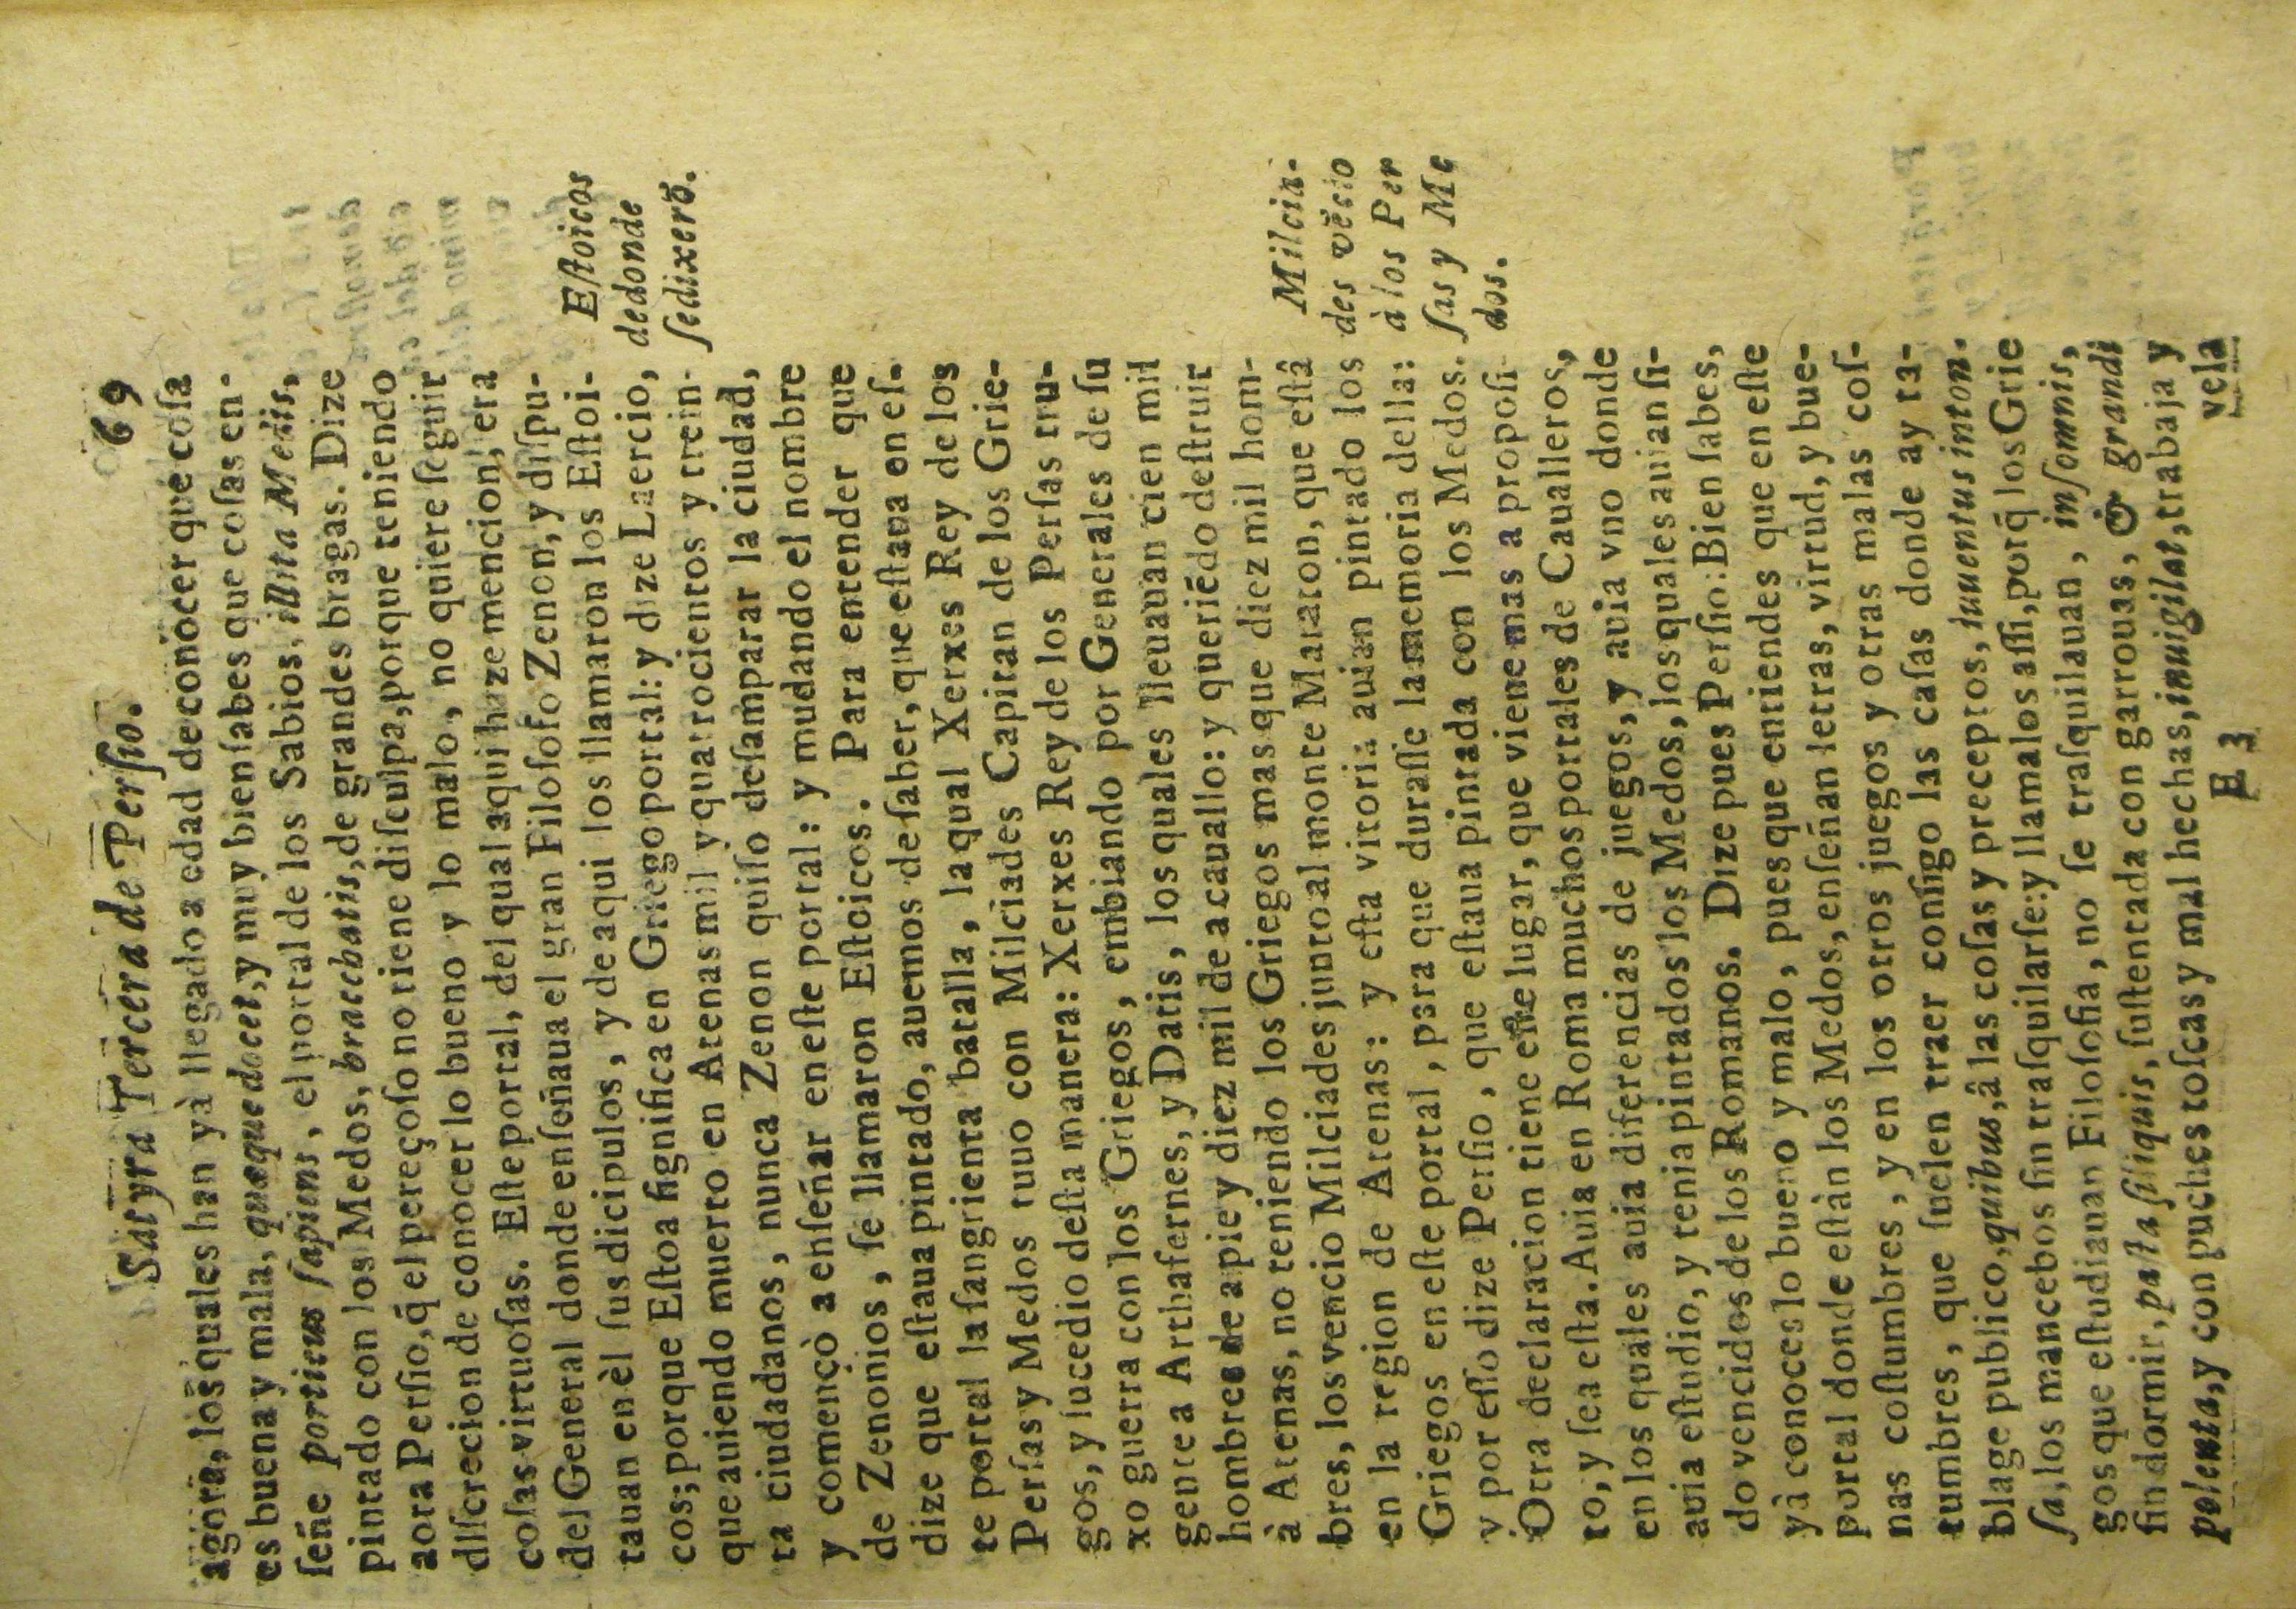 Satyra Tercera de Persio. 69
agora, los quales han yà llegado a edad de conocer que cosa
es buena y mala, quæque docet, y muy bien sabes que cosas en-
señe porticus sapiens, el portal de los Sabios, illita Medis,
pintado con los Medos, bracchatis, de grandes bragas. Dize
aora Persio, q̃ el pereçoso no tiene disculpa, porque teniendo
discrecion de conocer lo bueno y lo malo, no quiere seguir
cosas virtuosas. Este portal, del qual aqui haze mencion, era
del General donde enseñaua el gran Filosofo Zenon, y dispu-
tauan en èl sus dicipulos, y de aqui los llamaron los Estoi-
cos; porque Estoa significa en Griego portal: y dize Laercio,
que auiendo muerto en Atenas mil y quatrocientos y trein-
ta ciudadanos, nunca Zenon quiso desamparar la ciudad,
y començò a enseñar en este portal: y mudando el nombre
de Zenonios, se llamaron Estoicos. Para entender que
dize que estaua pintado, auemos de saber, que estaua en es-
te portal la sangrienta batalla, la qual Xerxes Rey de los
Persas y Medos tuuo con Milciades Capitan de los Grie-
gos, y sucedio desta manera: Xerxes Rey de los Persas tru-
xo guerra con los Griegos, embiando por Generales de su
gente a Arthafernes, y Datis, los quales lleuauan cien mil
hombres de a pie y diez mil de a cauallo: y queriẽdo destruir
à Atenas, no teniendo los Griegos mas que diez mil hom-
bres, los vencio Milciades junto al monte Maraton, que està
en la region de Atenas: y esta vitoria auian pintado los
Griegos en este portal, para que durasse la memoria della:
y por esso dize Persio, que estaua pintada con los Medos.
Otra declaracion tiene este lugar, que viene mas a proposi-
to, y sea esta. Auia en Roma muchos portales de Caualleros,
en los quales auia diferencias de juegos, y auia vno donde
auia estudio, y tenia pintados los Medos, los quales auian si-
do vencidos de los Romanos. Dize pues Persio: Bien sabes,
yà conoces lo bueno y malo, pues que entiendes que en este
portal donde estàn los Medos, enseñan letras, virtud, y bue-
nas costumbres, y en los otros juegos y otras malas cos-
tumbres, que suelen traer consigo las casas donde ay ta-
blage publico, quibus, à las cosas y preceptos, iuuentus inton-
sa, los mancebos sin trasquilarse: y llamalos assi, porq̃ los Grie
gos que estudiauan Filosofia, no se trasquilauan, insomnis,
sin dormir, pasta siliquis, sustentada con garrouas, & grandi
polenta, y con puches toscas y mal hechas, inuigilat, trabaja y
E 3 vela
Estoicos
dedonde
sedixerõ.
Milcia-
des vẽcio
à los Per
sas y Me
dos.